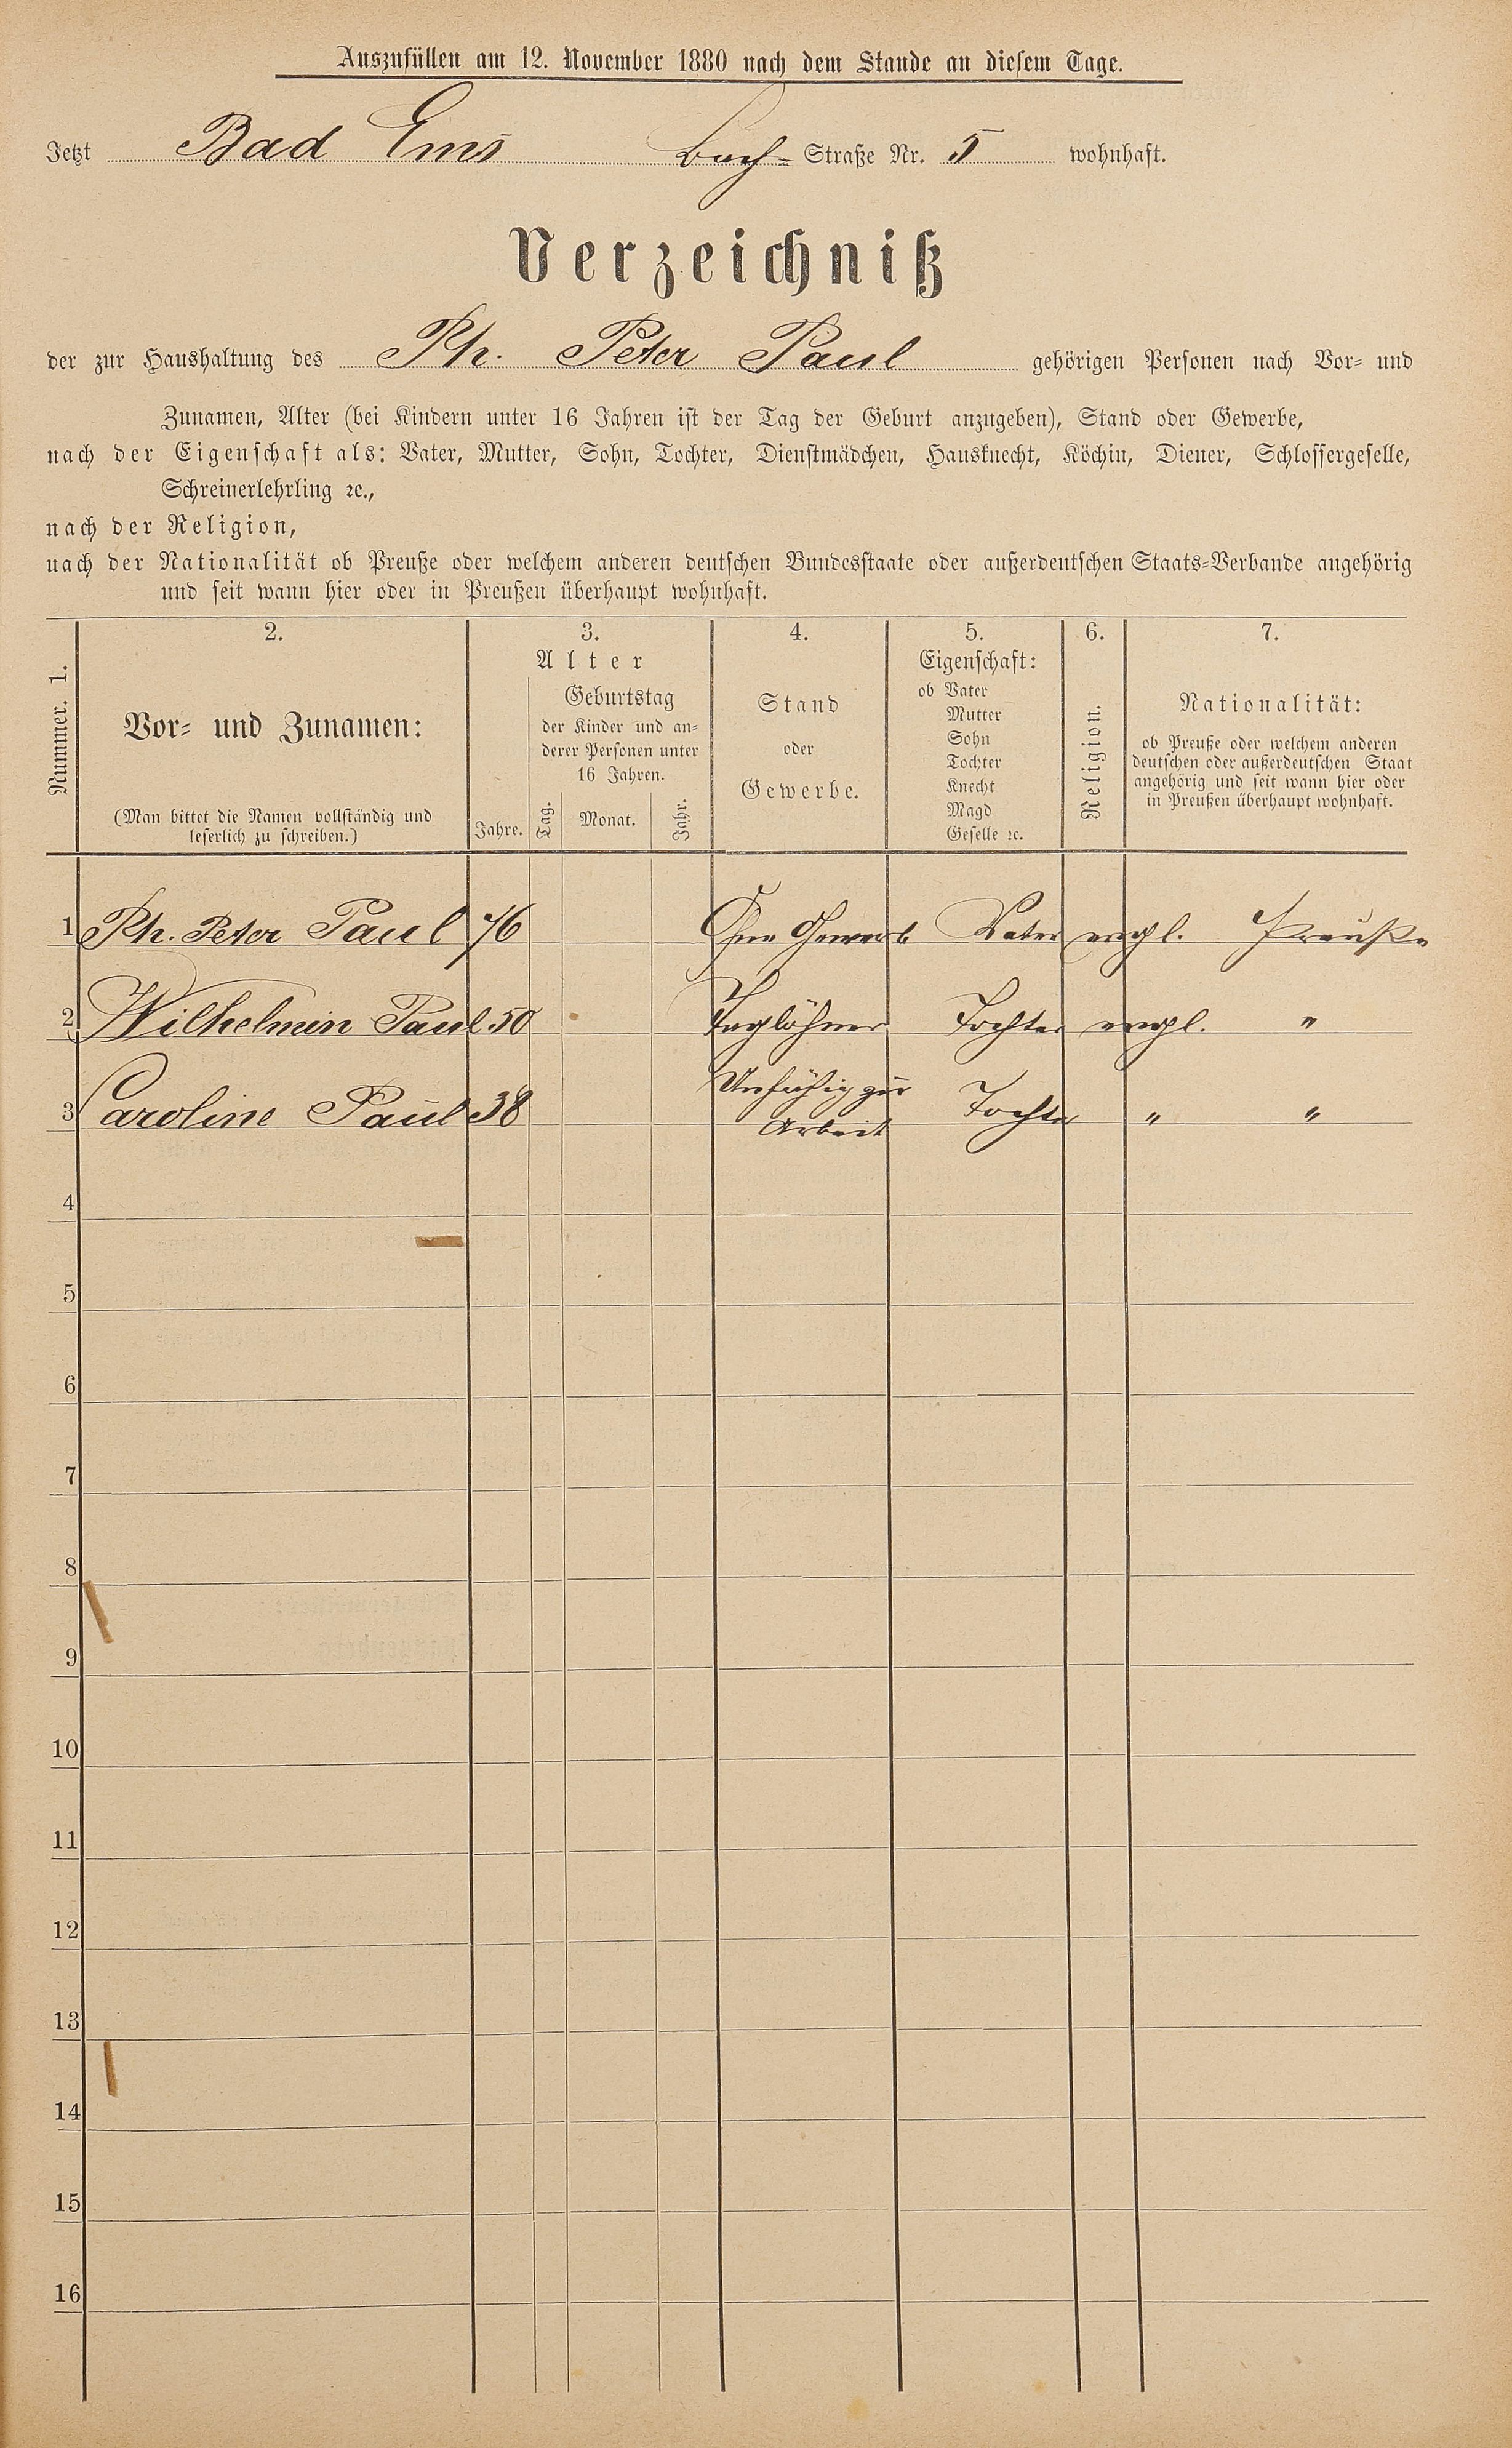 Auszufüllen am 12. November 1880 nach dem Stande an diesem Tage.
Jetzt Bad Ems Bach- Straße Nr. 5 wohnhaft.
Verzeichniß
der zur Haushaltung des Ph. Peter Paul gehörigen Personen nach Vor- und
Zunamen, Alter (bei Kindern unter 16 Jahren ist der Tag der Geburt anzugeben), Stand oder Gewerbe,
nach der Eigenschaft als: Vater, Mutter, Sohn, Tochter, Dienstmädchen, Hausknecht, Köchin, Diener, Schlossergeselle,
Schreinerlehrling ꝛc.,
nach der Religion,
nach der Nationalität ob Preuße oder welchem anderen deutschen Bundesstaate oder außerdeutschen Staats-Verbande angehörig
und seit wann hier oder in Preußen überhaupt wohnhaft.
Nummer. 1.
2.
Vor- und Zunamen:
(Man bittet die Namen vollständig und
leserlich zu schreiben.)
3.
Alter
Jahre.
Geburtstag
der Kinder und an-
derer Personen unter
16 Jahren.
Tag. Monat. Jahr.
4.
Stand
oder
Gewerbe.
5.
Eigenschaft:
ob Vater
Mutter
Sohn
Tochter
Knecht
Magd
Geselle ꝛc.
6.
Religion.
7.
Nationalität:
ob Preuße oder welchem anderen
deutschen oder außerdeutschen Staat
angehörig und seit wann hier oder
in Preußen überhaupt wohnhaft.
1 Ph. Peter Paul 76 Ohne Gewerb Vater evgl. Preuße
2 Wilhelmin Paul 50 Taglöhner Tochter evgl. "
3 Caroline Paul 38 Unfähig zur Arbeit Tochter " "
4
5
6
7
8
9
10
11
12
13
14
15
16